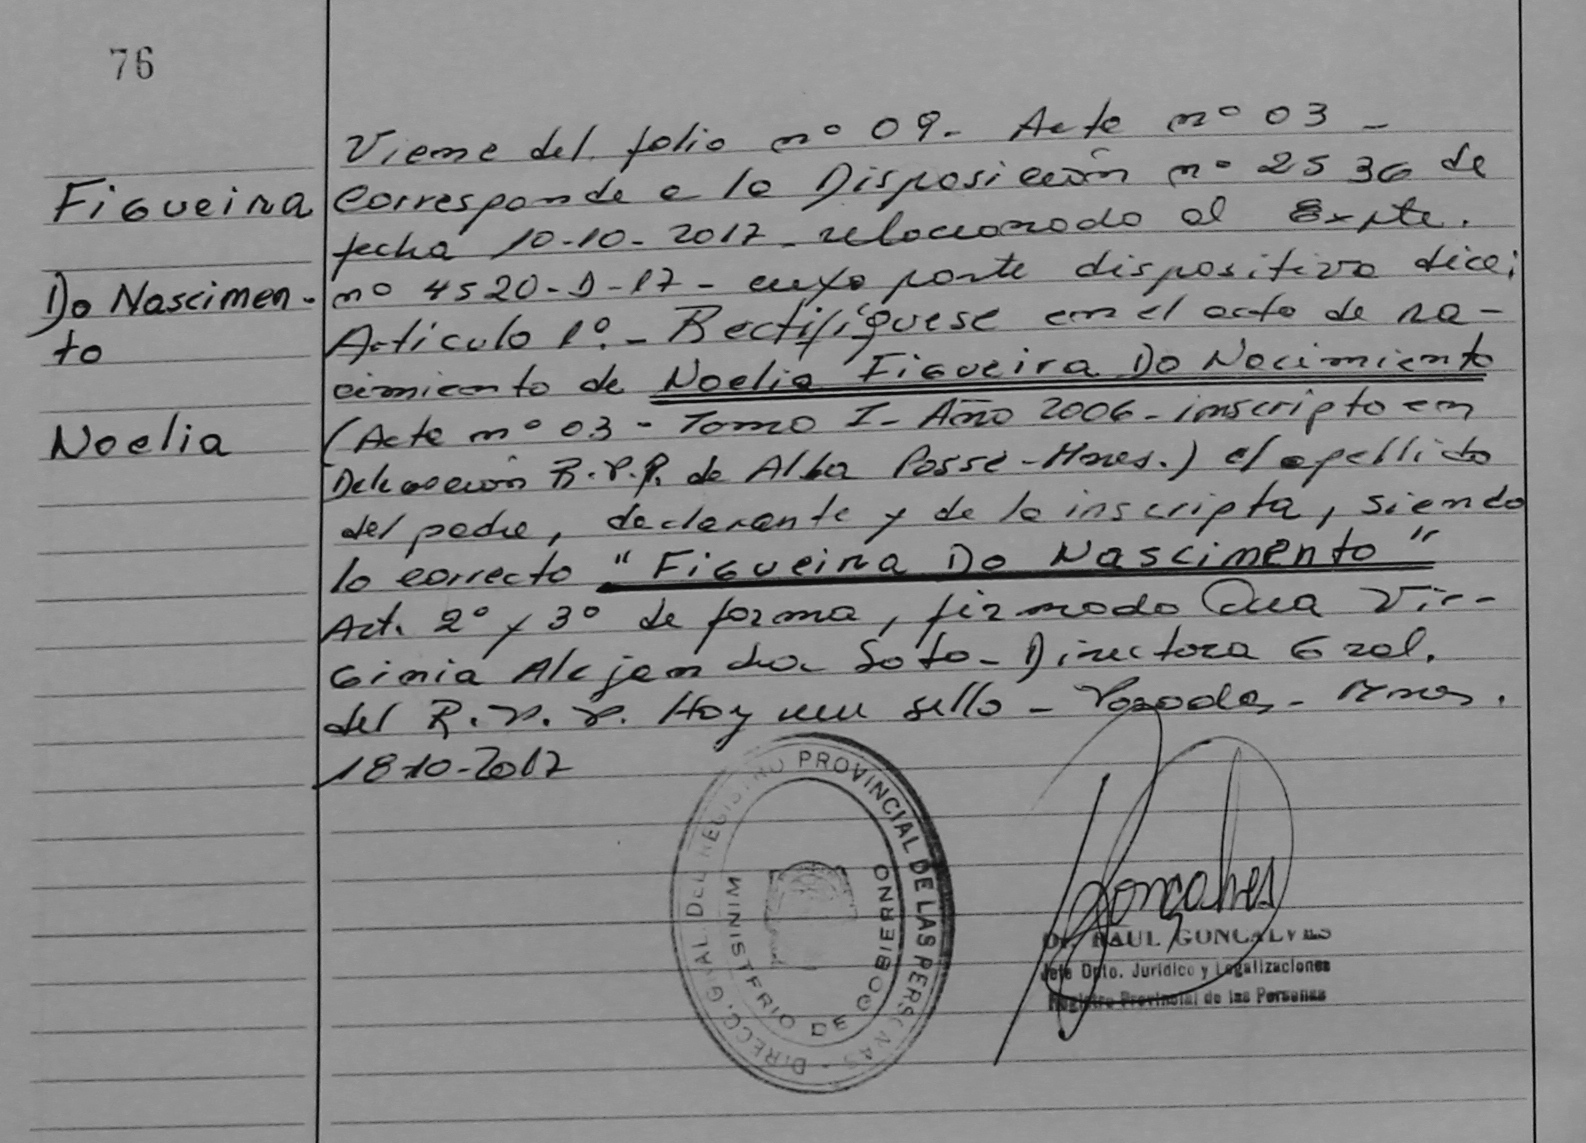 76
Figueira
Do Nascimen-
to
Noelia
Viene del folio nº 09. Acta nº 03 -
Corresponde a la Disposición nº 2536 de
fecha 10-10-2017 - relacionado al Expte.
nº 4520-D-17 - cuya parte dispositiva dice:
Artículo 1º.- Rectifíquese en el acta de na-
cimiento de Noelia Figueira Do Nacimiento
(Acta nº 03 - Tomo I - Año 2006 - inscripto en
Delegación R.P.P. de Alba Posse - Mnes.) el apellido
del padre, declarante y de la inscripta, siendo
lo correcto "Figueira Do Nascimento"
Art. 2º y 3º de forma, firmado Dra Vir-
ginia Alejandra Soto - Directora Gral.
del R.P.P. Hay un sello - Posadas - Mnes.
18-10-2017
DIRECC. GRAL. DEL REGISTRO PROVINCIAL DE LAS PERSONAS -
MINISTERIO DE GOBIERNO
Gonçalves
Dr. RAUL GONCALVES
Jefe Dpto. Jurídico y Legalizaciones
Registro Provincial de las Personas